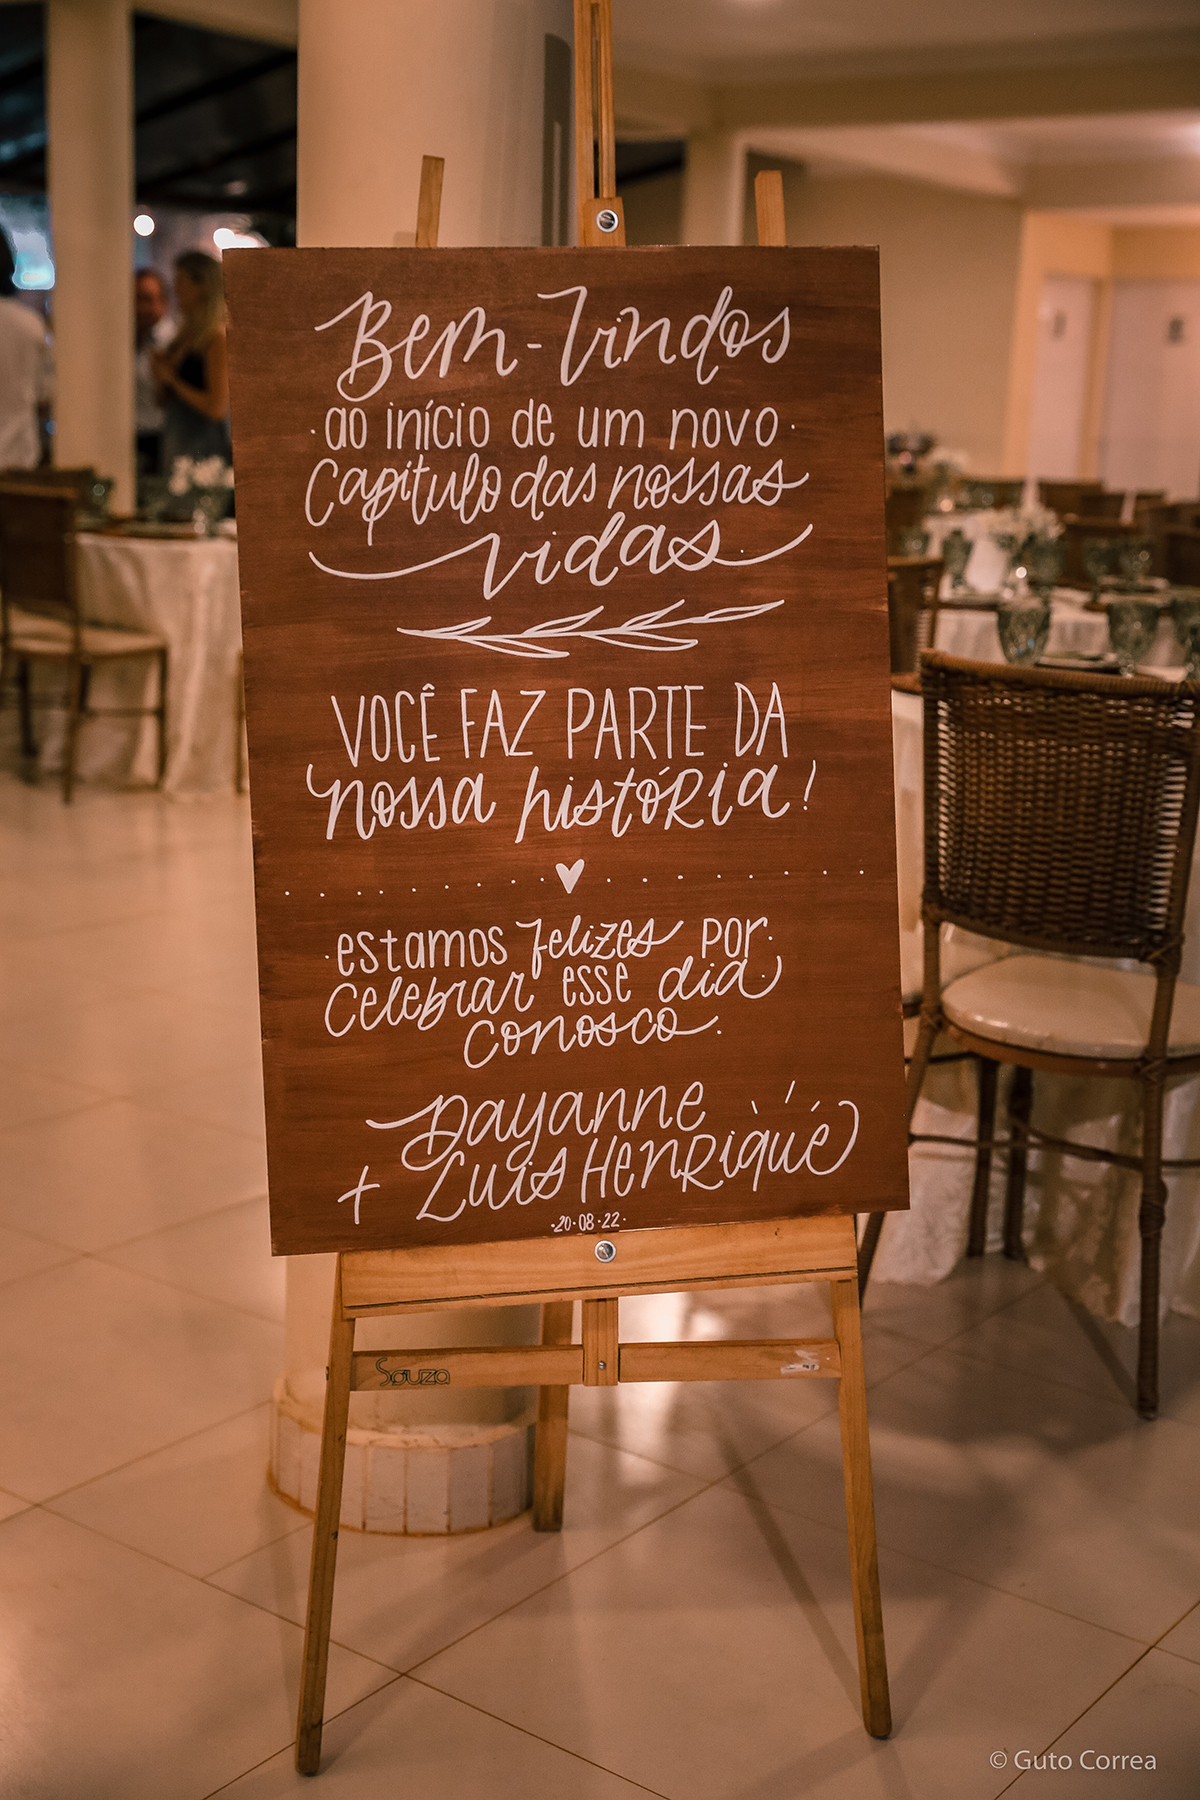 Bem-Vindos
·ao início de um novo·
Capitulo das nossas
vidas.
VOCÊ FAZ PARTE DA
nossa história!
·estamos felizes por·
celebrar esse dia
conosco.
Dayanne
+ Luis Henrique
·20·08·22·
Souza
© Guto Correa